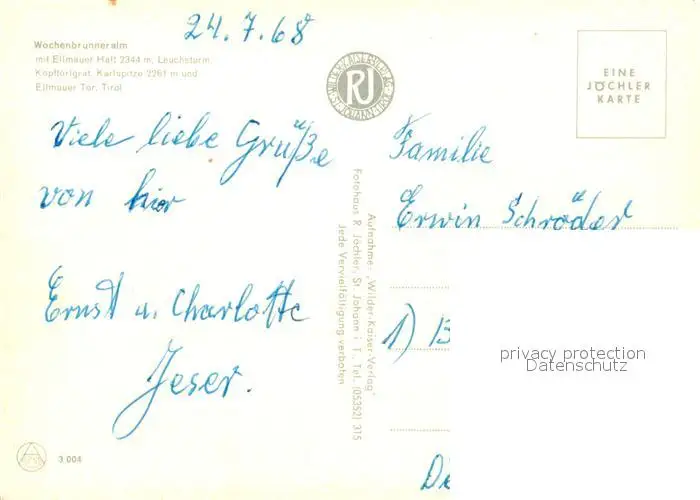 24.7.68
Wochenbrunneralm
mit Ellmauer Halt 2344 m, Leuchsturm,
Kopftörlgrat, Karlspitze 2261 m und
Ellmauer Tor, Tirol
Viele liebe Grüße
von hier
Ernst u. Charlotte
Jeser.
3 004
RJ
Aufnahme: „Wilder-Kaiser-Verlag"
Fotohaus R. Jöchler, St. Johann i. T., Tel. (05352) 315
Jede Vervielfältigung verboten
EINE
JÖCHLER
KARTE
Familie
Erwin Schröder
1)
privacy protection
Datenschutz